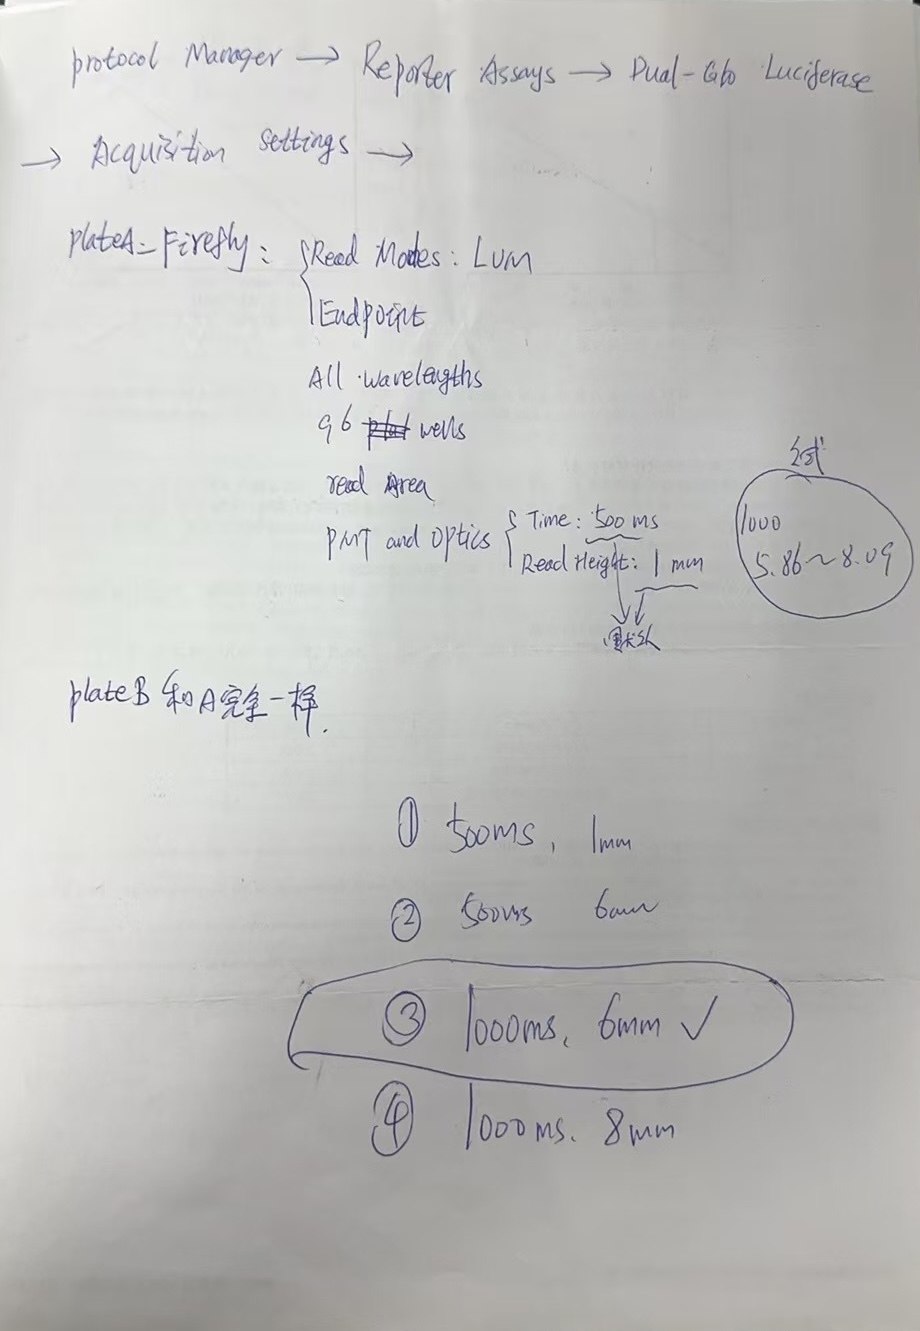 protocol Manager → Reporter Assays → Dual-Glo Luciferase
→ Acquisition settings →
plateA-Firefly: Read Modes: LUM
Endpoint
All wavelengths
96 wells
read Area
PMT and Optics Time: 500 ms
Read Height: 1 mm
公式
1000
5.86~8.09
plateB 和A完全一样.
① 500ms, 1mm
② 500ms 6mm
③ 1000ms, 6mm ✓
④ 1000ms. 8mm